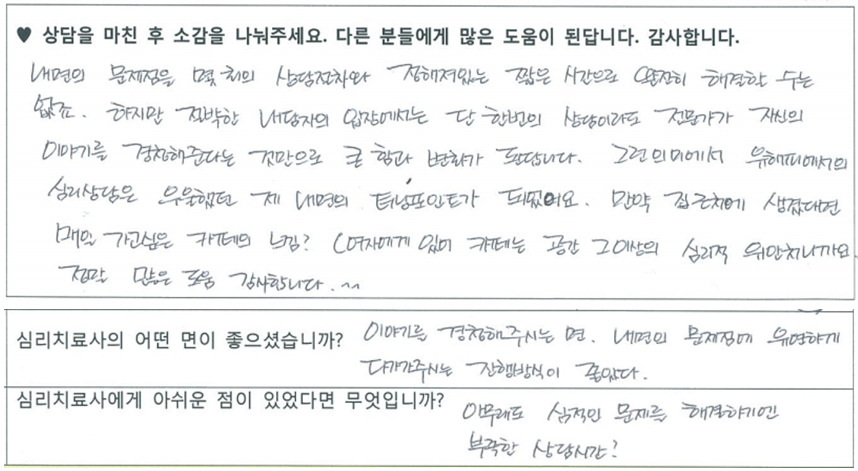 ♥ 상담을 마친 후 소감을 나눠주세요. 다른 분들에게 많은 도움이 된답니다. 감사합니다.
내면의 문제점을 몇 회의 상담절차와 정해져있는 짧은 시간으로 완전히 해결할 수는
없죠. 하지만 절박한 내담자의 입장에서는 단 한번의 상담이라도 전문가가 자신의
이야기를 경청해준다는 것만으로 큰 힘과 변화가 된답니다. 그런의미에서 유해피에서의
심리상담은 우울했던 제 내면의 터닝포인트가 되었어요. 만약 집근처에 생겼다면
매일 가고싶은 카페의 느낌? (여자에게 있어 카페는 공간 그이상의 심리적 위안처니까요.
정말 많은 도움 감사합니다.~
심리치료사의 어떤 면이 좋으셨습니까? 이야기를 경청해주시는 면. 내면의 문제점에 유연하게
다가가주시는 진행방식이 좋았다.
심리치료사에게 아쉬운 점이 있었다면 무엇입니까? 아무래도 심적인 문제를 해결하기엔
부족한 상담시간?